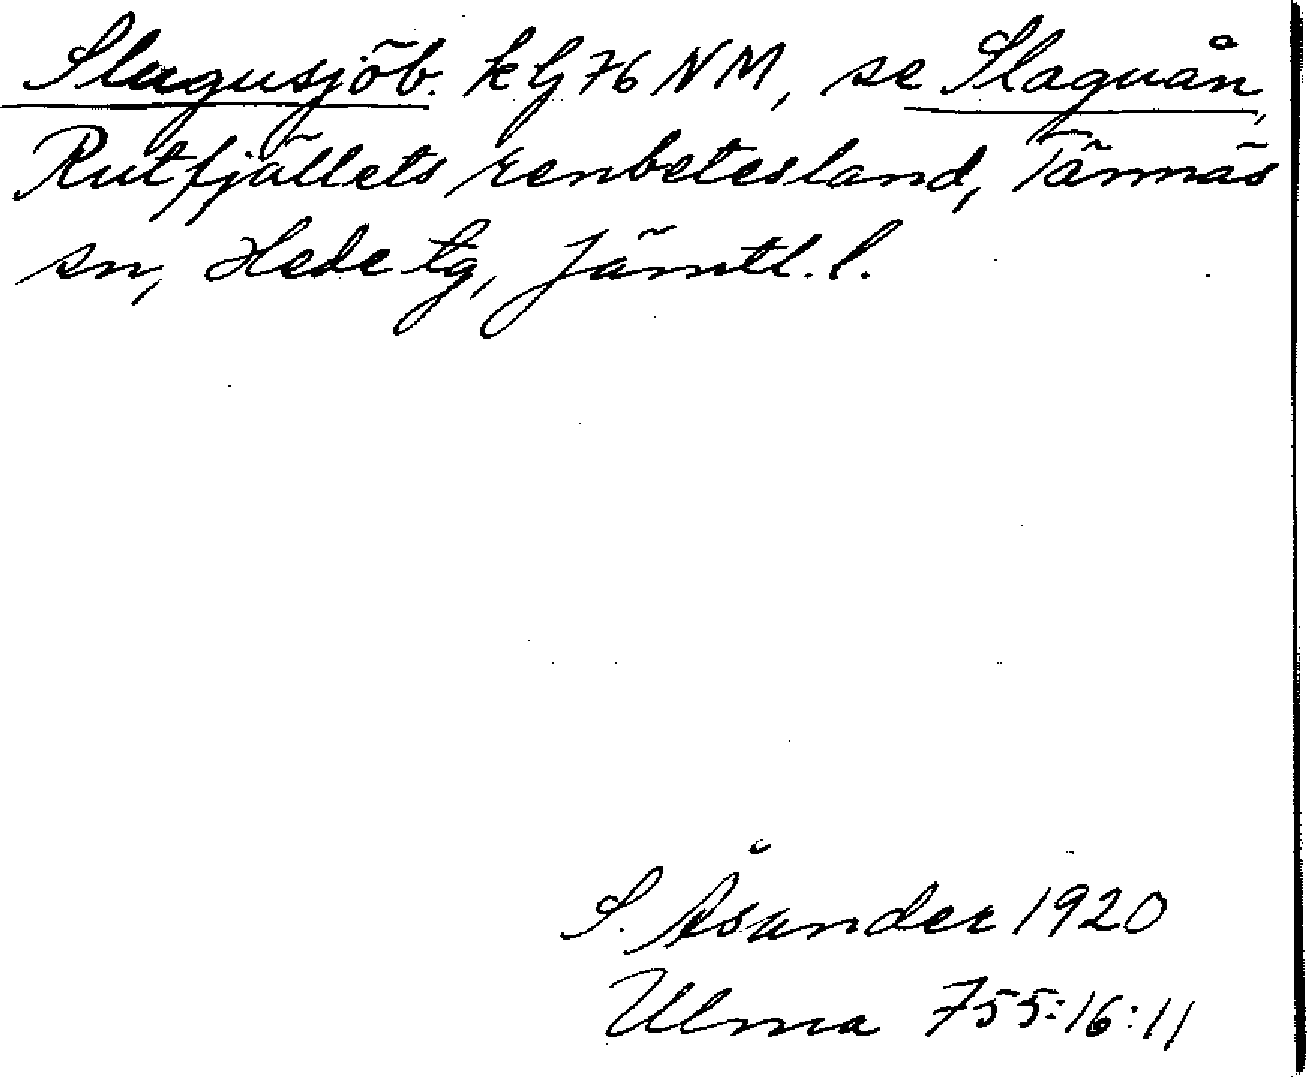 Slagusjöb. kG76NM, se Slaguån,
Rutfjällets renbetesland, Tännäs
sn, Hede tg, Jämtl. l.
S. Åsander 1920
Ulma 755:16:11